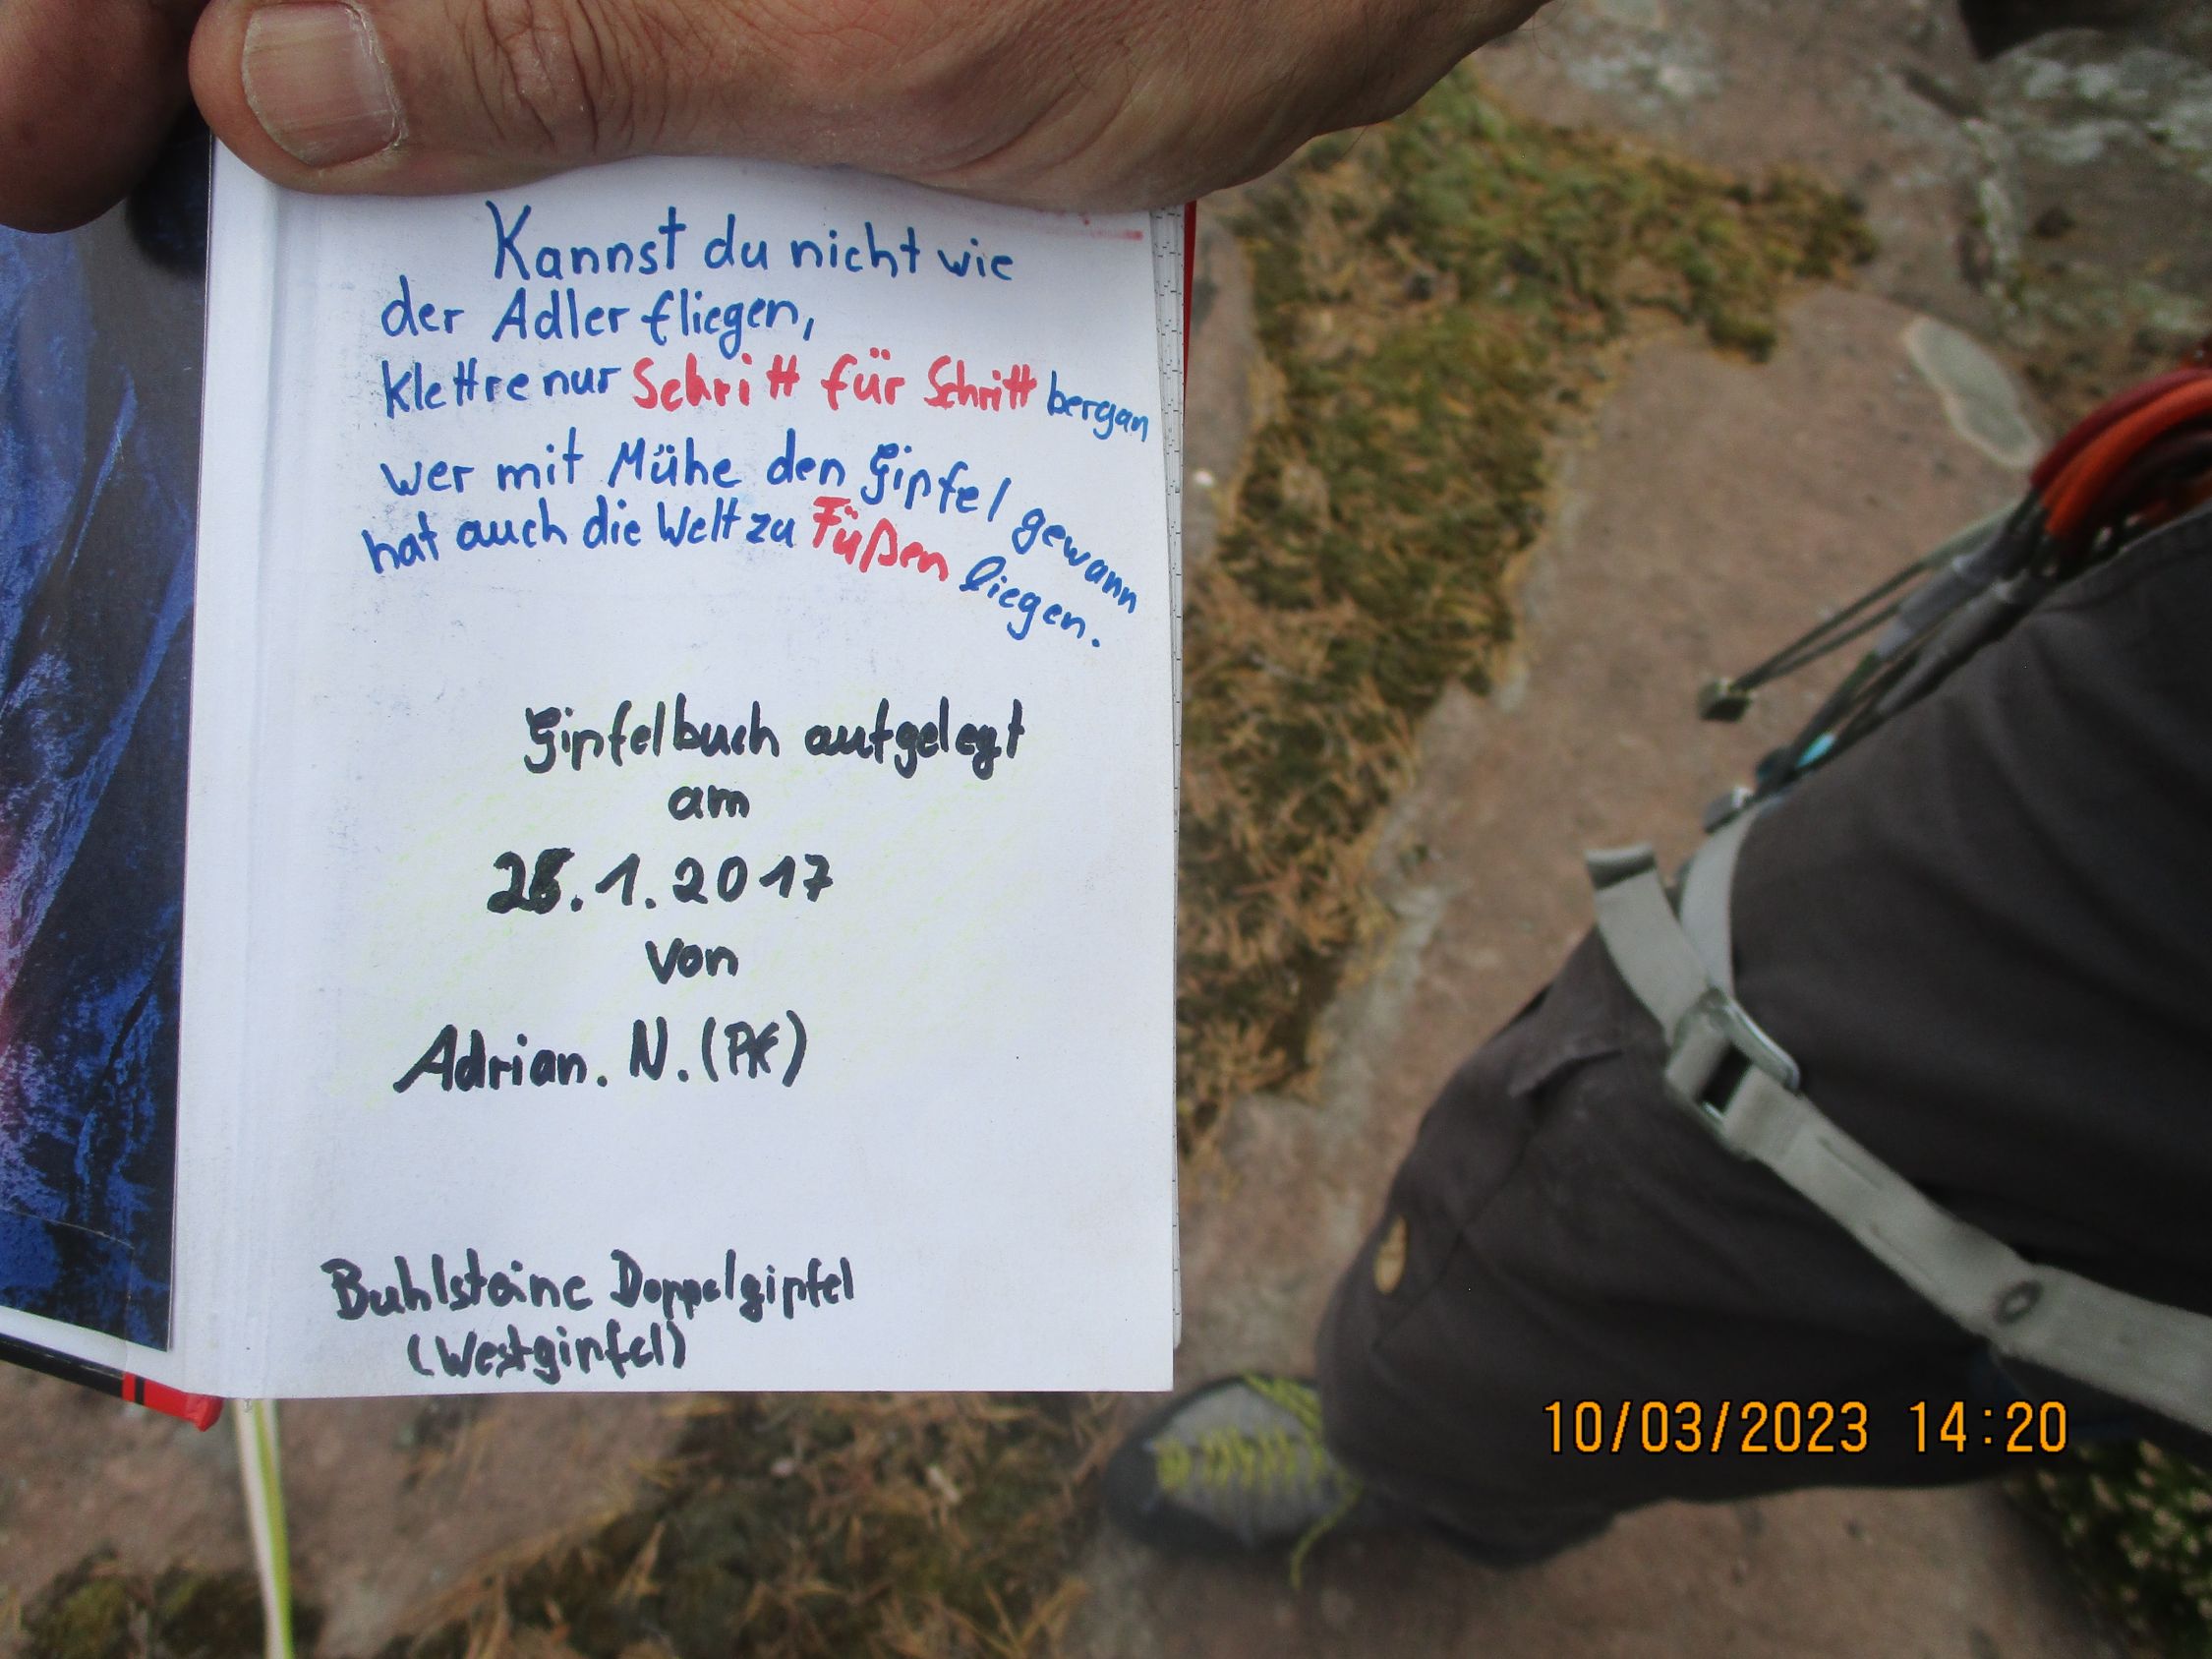 Kannst du nicht wie
der Adler fliegen,
Klettre nur Schritt für Schritt bergan
wer mit Mühe den Gipfel gewann
hat auch die Welt zu Füßen liegen.
Gipfelbuch aufgelegt
am
.1.2017
von
Adrian. N. (PK)
Buhlsteine Doppelgipfel
(Westgipfel)
10/03/2023 14:20